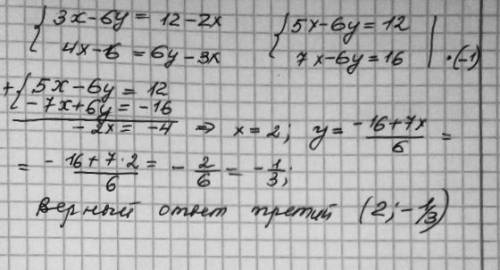 { 3x-6y = 12-2x   { 5x-6y = 12
4x-16 = 6y-3x   7x-6y = 16 | ·(-1)
+ { 5x-6y = 12
-7x+6y = -16
-2x = -4 ⇒ x = 2; y = (-16+7x)/6 =
= (-16+7·2)/6 = -2/6 = -1/3;
верный ответ третий (2; -1/3)